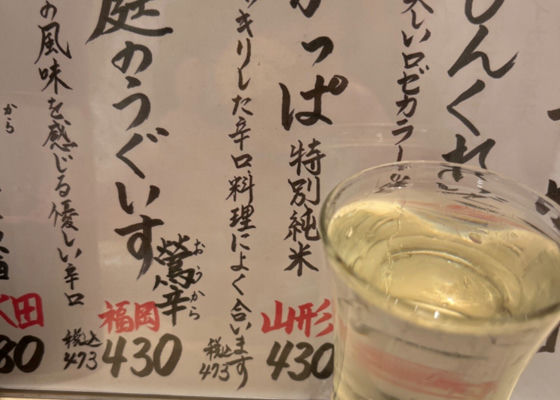 んくれ
しいロゼカラー
っぱ
特別純米
山形
430
キリした辛口料理によく合います
税込
473
庭のうぐいす
鶯辛
おうから
福岡
430
の風味を感じる優しい辛口
税込
473
から
田
80